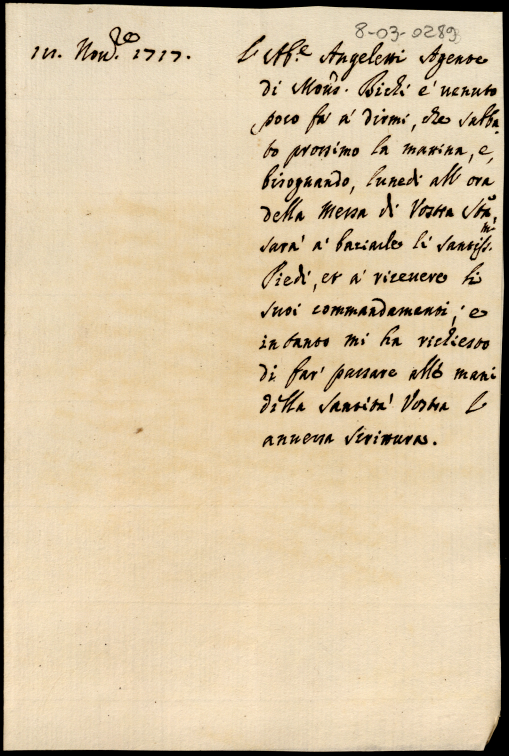 8-03-0289
Nov.re 1717.
L'Ab.e Angeletti Agente
di Mons.r Bichi è venuto
poco fà à dirmi, che sabba-
to prossimo la matina, e,
bisognando, lunedi all'ora
della Messa di Vostra Stà,
sarà à baciarle li santiss.mi
Piedi, et à ricevere li
suoi commandamenti; e
intanto mi hà richiesto
di far' passare alle mani
della Santità Vostra l'
annessa scrittura.